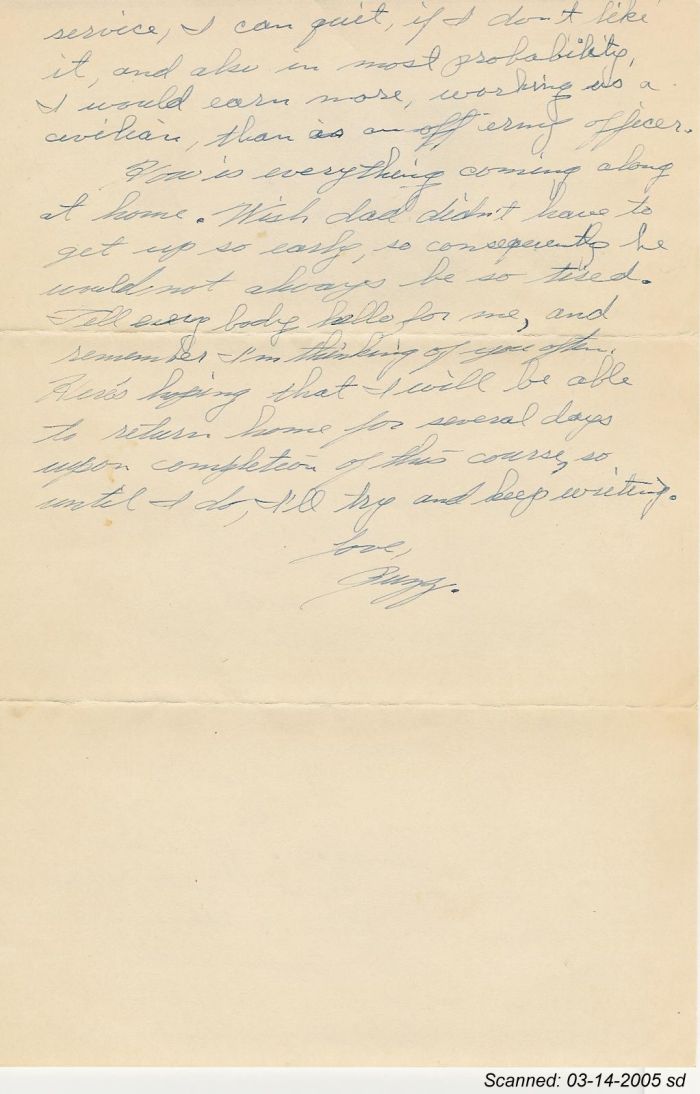 service, I can quit, if I don't like
it, and also in most probability,
I would earn more, working as a
civilian, than as an army officer.
How is everything coming along
at home. Wish dad didn't have to
get up so early, so consequently he
would not always be so tired.
Tell every body hello for me, and
remember I'm thinking of you often.
Here's hoping that I will be able
to return home for several days
upon completion of this course, so
until I do, I'll try and keep writing.
Love,
Scanned: 03-14-2005 sd